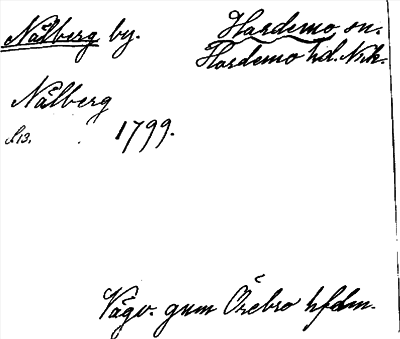 Nålberg by. Hardemo sn.
Hardemo hd. Nrk.
Nålberg
S. 13. 1799.
Vägv. gnm Örebro hfdm.